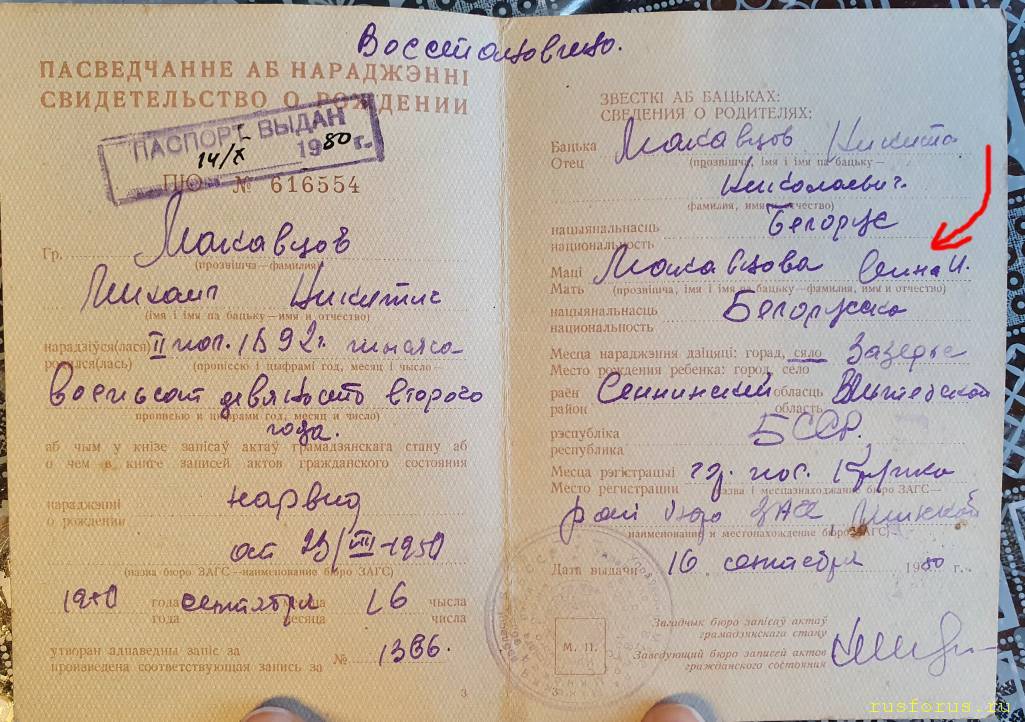 Восстановлено.
ПАСВЕДЧАННЕ АБ НАРАДЖЭННІ
СВИДЕТЕЛЬСТВО О РОЖДЕНИИ
ПАСПОРТ ВЫДАН
14/X 1980 г.
№ 616554
Гр. Макавцов
(прозвішча—фамилия)
Михаил Никитич
(імя і імя па бацьку—имя и отчество)
нарадзіўся(лася) II 1892 г. тысяча
родился(лась) (пропіссю і цыфрамі год, месяц і чысло—
восемьсот девяносто второго
прописью и цифрами год, месяц и число)
года.
аб чым у кнізе запісаў актаў грамадзянскага стану аб
о чем в книге записей актов гражданского состояния
нараджэнні
о рождении
от 23/VIII-1950
(назва бюро ЗАГС—наименование бюро ЗАГС)
1950 года сентября месяца 16 чысла
года месяца числа
утворан адпаведны запіс за
произведена соответствующая запись за № 1386.
3
ЗВЕСТКІ АБ БАЦЬКАХ:
СВЕДЕНИЯ О РОДИТЕЛЯХ:
Бацька Макавцов Никита
Отец (прозвішча, імя і імя па бацьку—
Николаевич.
фамилия, имя и отчество)
нацыянальнасць Белорус
национальность
Маці Макавцова И.
Мать (прозвішча, імя і імя па бацьку—фамилия, имя и отчество)
нацыянальнасць Белорусска
национальность
Месца нараджэння дзіцяці: горад, сяло
Место рождения ребенка: город, село
раён Сеннинский обласць Витебской
район область
рэспубліка БССР.
республика
Месца рэгістрацыі
Место регистрации (назва і месцазнаходжанне бюро ЗАГС—
бюро ЗАГС Минской
наименование и местонахождение бюро ЗАГС)
Дата выдачи 16 сентября 1950 г.
Загадчык бюро запісаў актаў
грамадзянскага стану
М. П.
Заведующий бюро записей актов
гражданского состояния
3
rusforus.ru